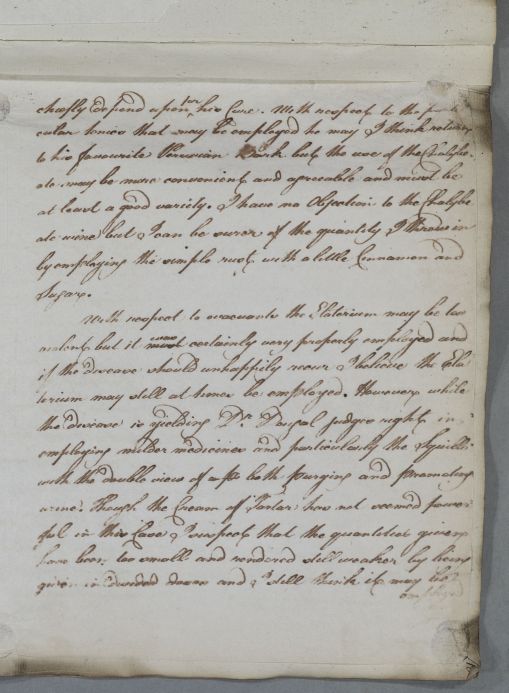 chiefly depend upon for his Cure. With respect to the p
cular tonics that may be employed he may I think return
to his favourite Peruvian Bark but the use of the Chalybe
ate may be more convenient and agreeable and must be
at least a good variety. I have no Objection to the Chalybe
ate wine but I can be surer of the quantity I throw in
by employing the simple rust with a little Cinnamon and
Sugar.
With respect to evacuants the Elaterium may be too
violent but it was certainly very properly employed and
if the disease should unhappily recur I believe the Ela
terium may still at times be employed. However while
the disease is yielding Dr. Dougal judges right in
employing milder medicines and particularly the Squills
with the double view of both purging and promoting
urine. Though the Cream of Tartar has not seemed power
ful in this Case I suspect that the quantities given
have been too small and rendered still weaker by being
given in divided doses and I still think it may be
employed